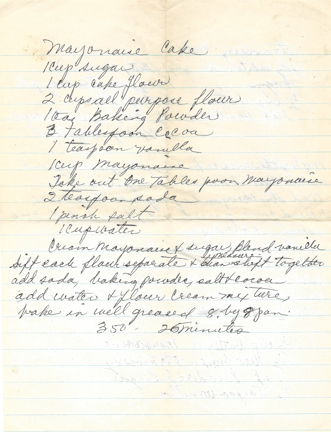 Mayonaise Cake
1 cup sugar
1 cup cake flour
2 cups all purpose flour
1 tea. Baking Powder
3 Tablespoon Cocoa
1 teaspoon vanilla
1 cup Mayonaise
Take out One Tablespoon Mayonaise
2 teaspoon soda
1 pinch salt
1 cup water
Cream Mayonaise & sugar, blend vanilla
Sift each flour separate & then sift together
add soda, baking powder, salt & cocoa
add water & flour cream mixture,
bake in well greased 8 by 8 pan.
350 - 26 minutes